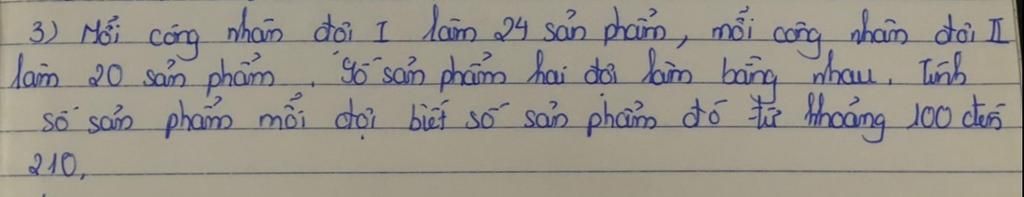 3) Mỗi công nhân đội I làm 24 sản phẩm, mỗi công nhân đội II
làm 20 sản phẩm. Số sản phẩm hai đội làm bằng nhau. Tính
số sản phẩm mỗi đội biết số sản phẩm đó từ khoảng 100 đến
210.